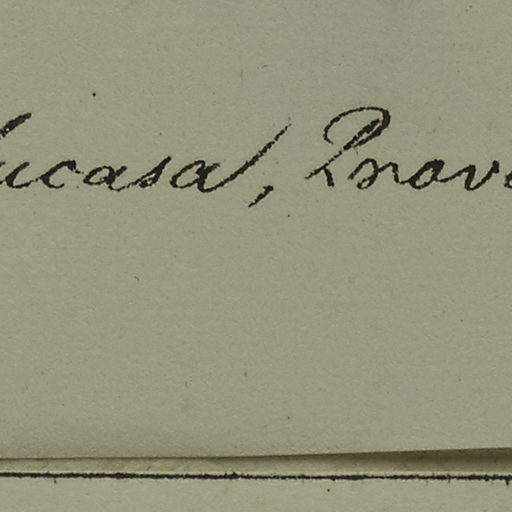 ucasa, Prov